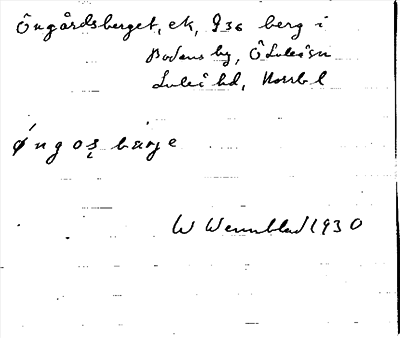 Öngårdsberget, ek, 936 berg i
Bodens by, Ö Luleå sn
Luleå hd, Norrb l
øngoṣbærje
W Wennblad 1930